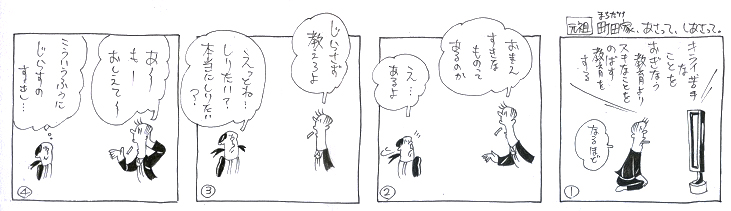 元祖
まちだけ
町田家、あさって、しあさって。
キライ・苦手
な
ことを
おぎなう
教育より
スキなことを
のばす
教育を
する
なるほど
①
おまえ
すきな
ものって
あるのか
え…
あるよ
②
じいさま
教えろよ
えっとね…
しりたい?…
本当にしりたい
?…
③
あ〜
も!
おしえて〜
こういうふうに
じらすの
すきし…
④